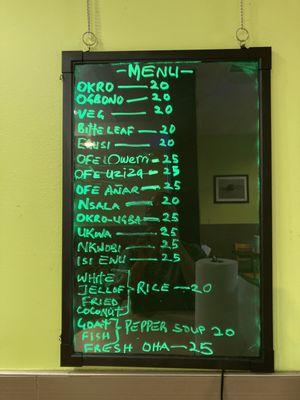 - MENU -
OKRO — 20
OGBONO — 20
VEG — 20
BITTE LEAF — 20
EGUSI — 20
OFE OWERRI — 25
OFE UZIZA — 25
OFE AÑAR — 25
NSALA — 20
OKRO-UGBA — 25
UKWA — 25
NKWOBI — 25
ISI EWU — 25
WHITE
JELLOF RICE — 20
FRIED
COCONUT
GOAT PEPPER SOUP 20
FISH
FRESH OHA — 25